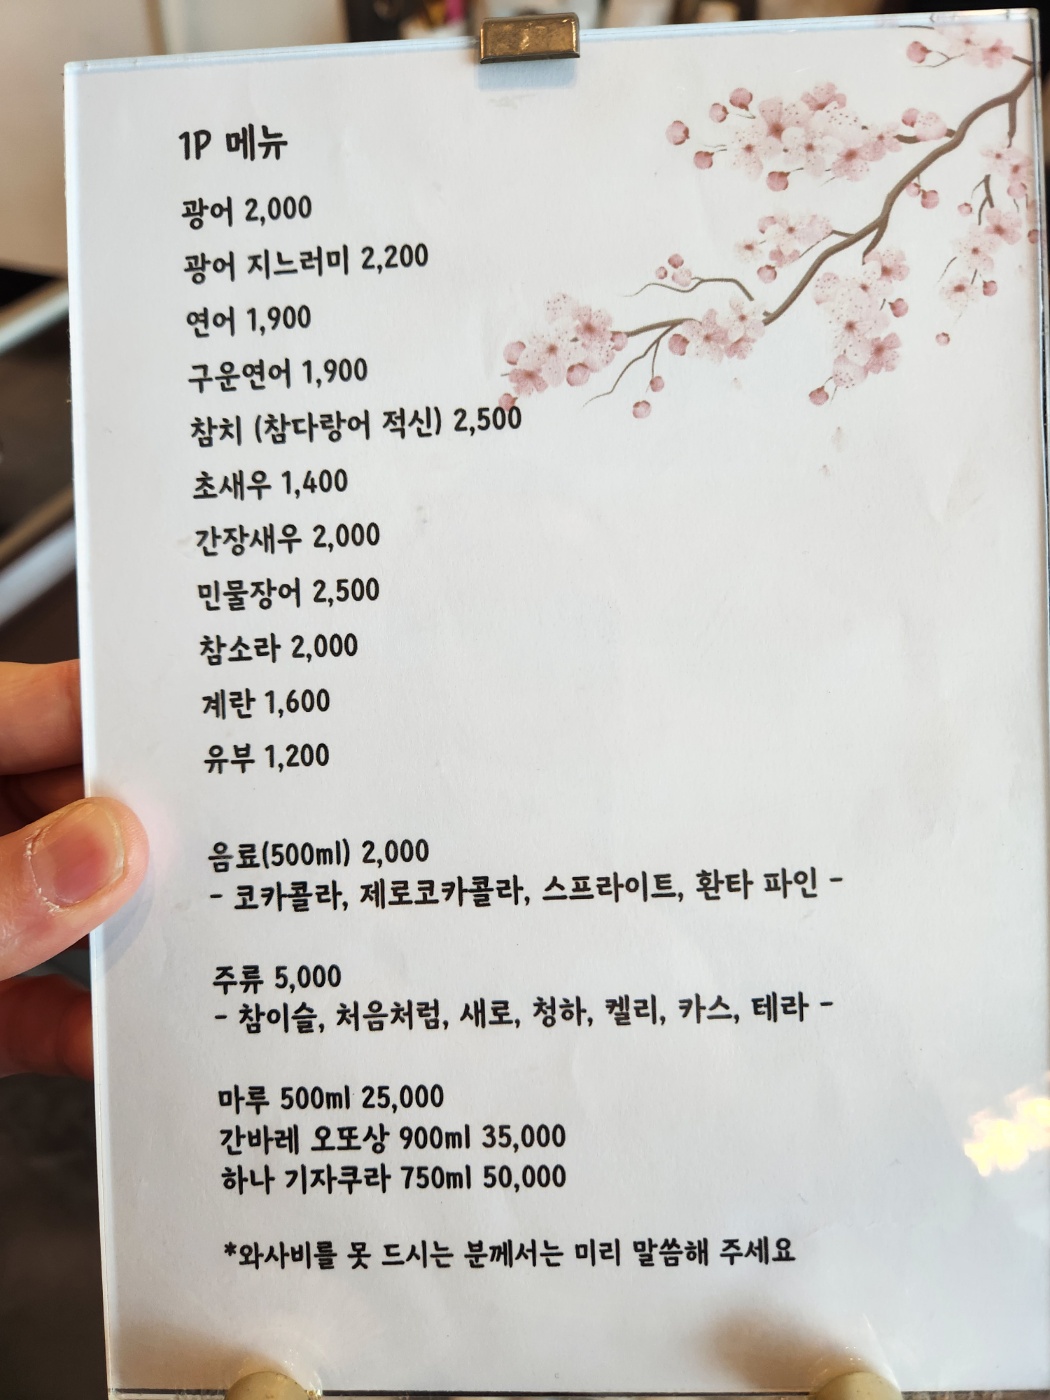 1P 메뉴
광어 2,000
광어 지느러미 2,200
연어 1,900
구운연어 1,900
참치 (참다랑어 적신) 2,500
초새우 1,400
간장새우 2,000
민물장어 2,500
참소라 2,000
계란 1,600
유부 1,200
음료(500ml) 2,000
- 코카콜라, 제로코카콜라, 스프라이트, 환타 파인 -
주류 5,000
- 참이슬, 처음처럼, 새로, 청하, 켈리, 카스, 테라 -
마루 500ml 25,000
간바레 오또상 900ml 35,000
하나 기자쿠라 750ml 50,000
*와사비를 못 드시는 분께서는 미리 말씀해 주세요